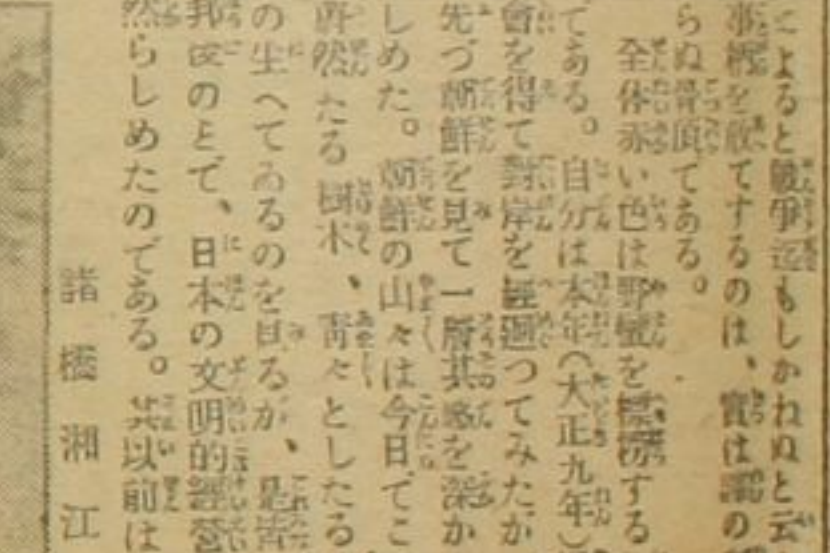 によると戰爭迄もしかねぬと云
事柄を敢てするのは、實は譯の
らぬ骨頂である。
全体赤い色は野蠻を標榜する
である。自分は本年（大正九年）
會を得て對岸を經廻つてみたが
先づ朝鮮を見て一層其感を深か
しめた。朝鮮の山々は今日でこ
蔚然たる樹木、靑々としたる
の生へてゐるのを見るが、是皆
我國のもとで、日本の文明的經營
然らしめたのである。其以前は
諸橋湘江